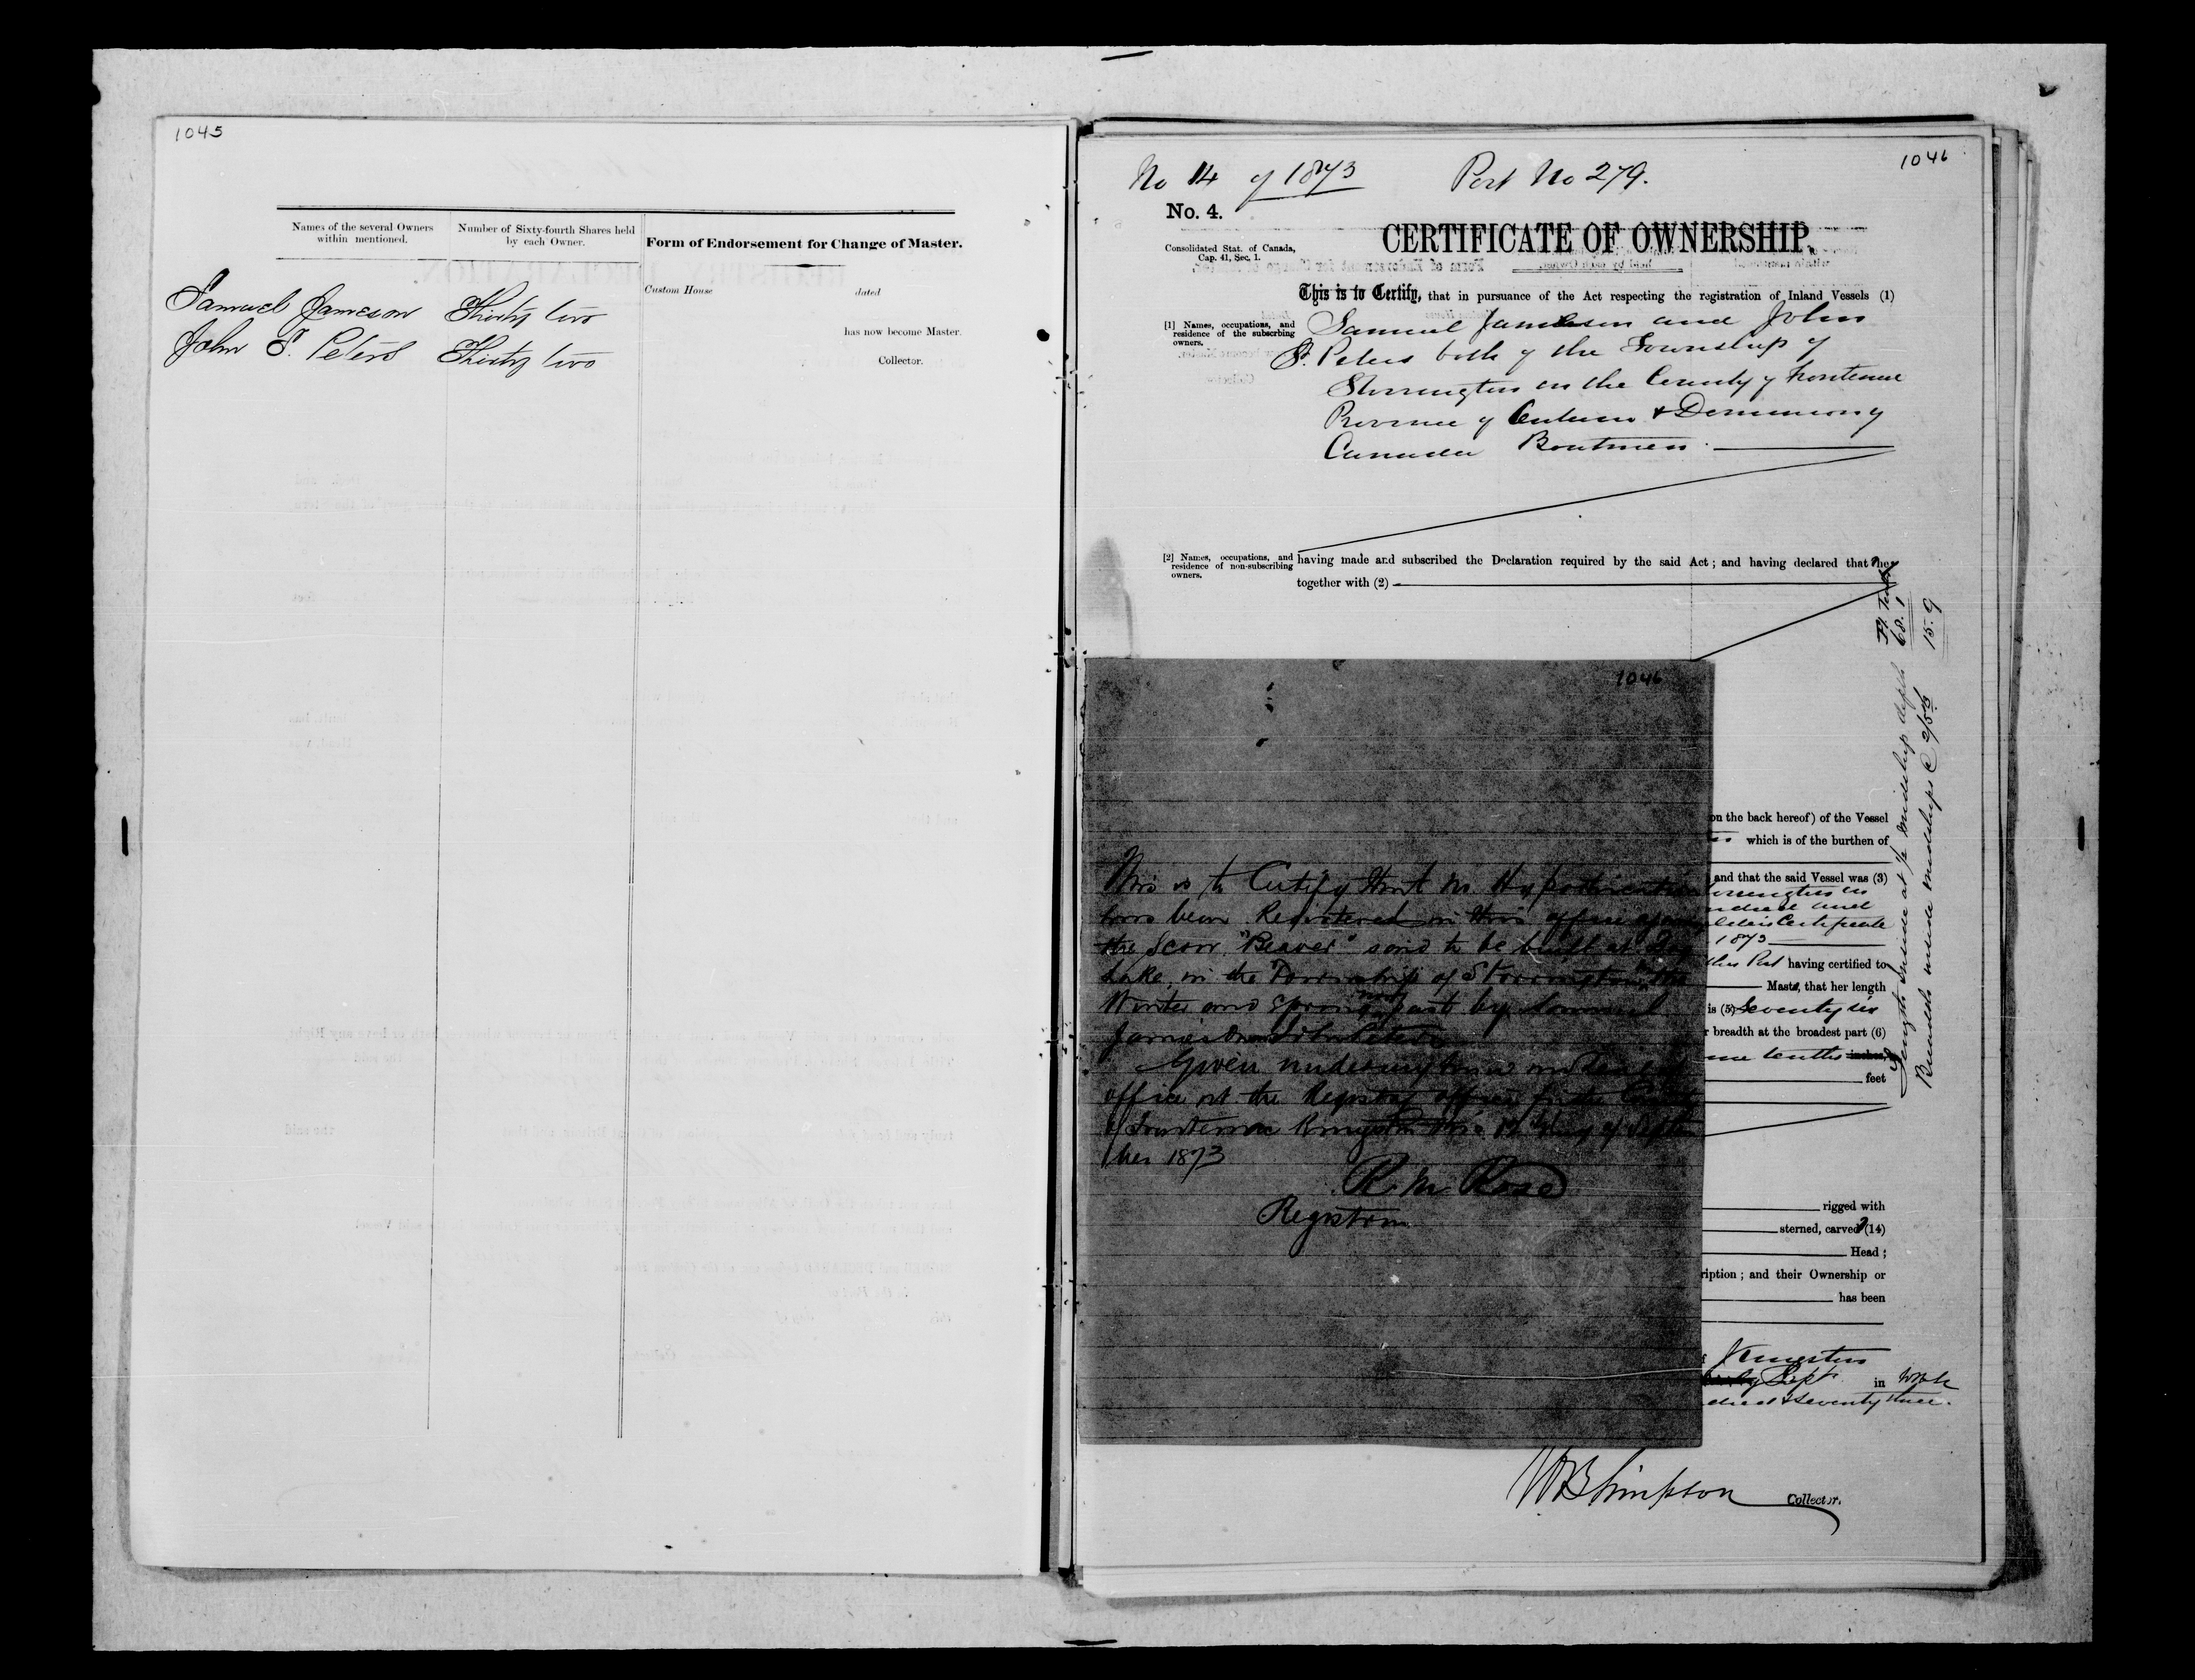 1045
Names of the several Owners within mentioned.
Number of Sixty-fourth Shares held by each Owner.
Form of Endorsement for Change of Master.
Custom House dated
has now become Master.
Collector.
Samuel Jameson Thirty two
John S. Peters Thirty two
1046
No 14 of 1873 Port No 279.
No. 4.
CERTIFICATE OF OWNERSHIP.
Consolidated Stat. of Canada,
Cap. 41, Sec. 1.
This is to Certify, that in pursuance of the Act respecting the registration of Inland Vessels (1)
[1] Names, occupations, and
residence of the subscrbing
owners.
Samuel Jameson and John
S. Peters both of the Township of
Storrington in the County of Frontenac
Province of Ontario & Dominion of
Canada Boatmen
[2] Names, occupations, and
residence of non-subscribing
owners.
having made and subscribed the Declaration required by the said Act ; and having declared that they
together with (2)
1046
on the back hereof) of the Vessel
which is of the burthen of
and that the said Vessel was (3)
Certificate
1873
this Port having certified to
Masts, that her length
is (5) Seventy six
breadth at the broadest part (6)
tenths inches,
feet
This is to Certify that no Hypothecation
has been Registered in this office against
the Scow "Beaver" said to be built at
Lake, in the Township of Storrington the
Winter and Spring past by Samuel
Given under my hand and
office at the Registry office for the County
of Frontenac Kingston this day of Septem
ber 1873
R. M. Rose
Registrar
rigged with
sterned, carved (14)
Head ;
ription ; and their Ownership or
has been
Kingston
Sept in
seventy three.
W B Simpson Collector.
Length inside at 1/2 midship depth 68.1
Breadth inside midships 15.9